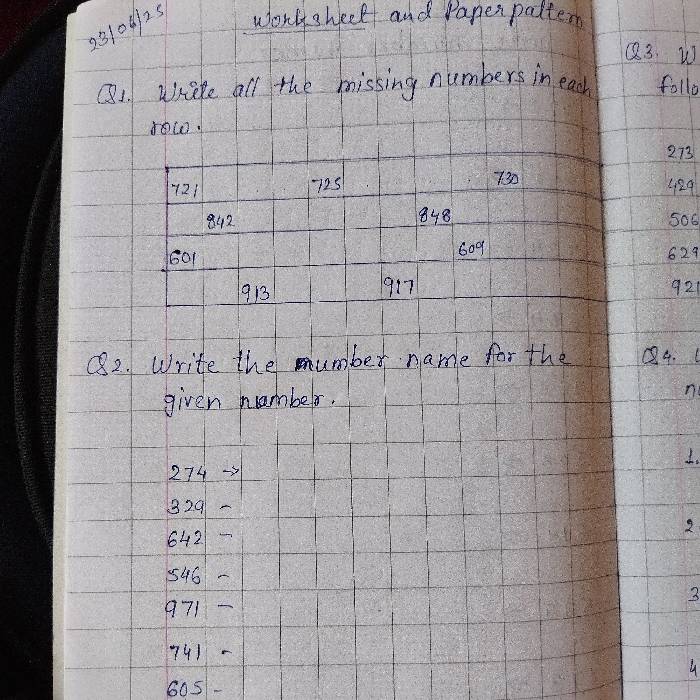 23/06/25
Worksheet and Paper pattern
Q1. Write all the missing numbers in each
row.
721 725 730
842 848
601 609
913 917
Q2. Write the number name for the
given number.
274 →
329 -
642 -
546 -
971 -
741 -
605 -
Q3. W
follo
273
429
506
629
921
Q4.
1.
2
3
4